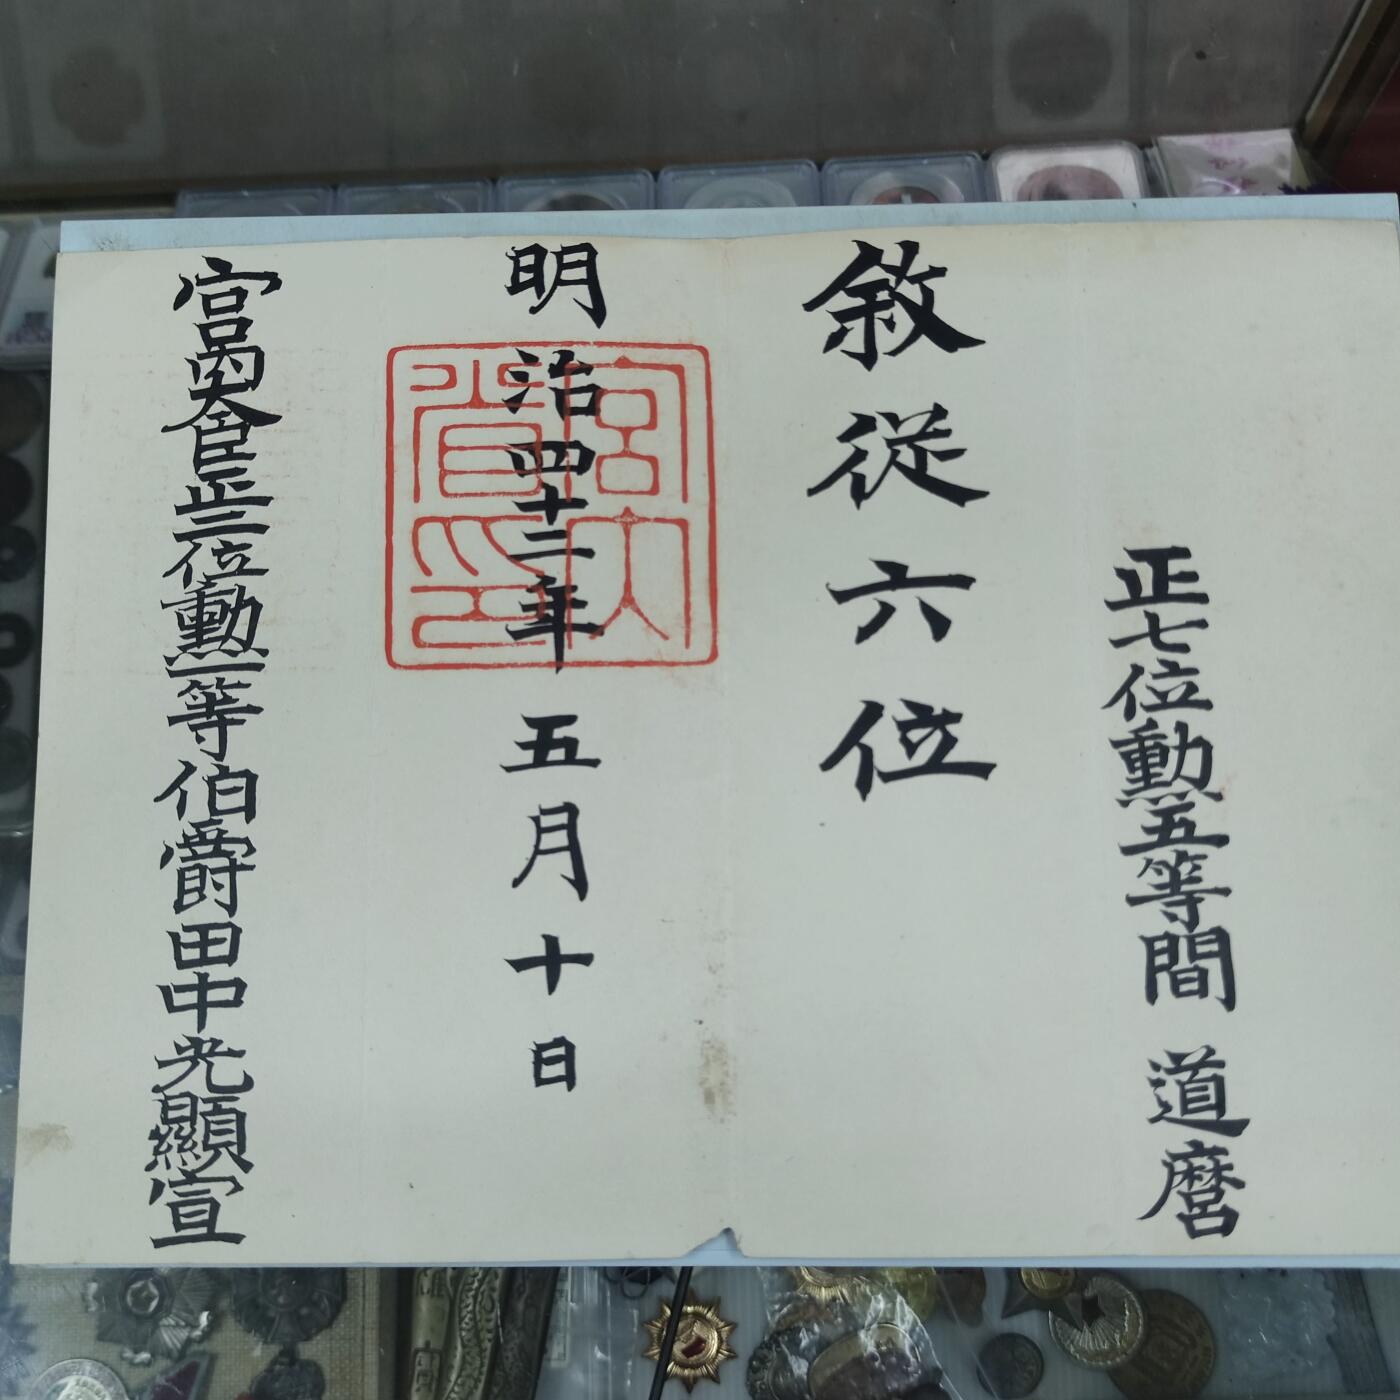 正七位勳五等間 道麿
敍従六位
明治四十二年五月十日
宮内大臣正二位勳一等伯爵田中光顯宣
宮内省印